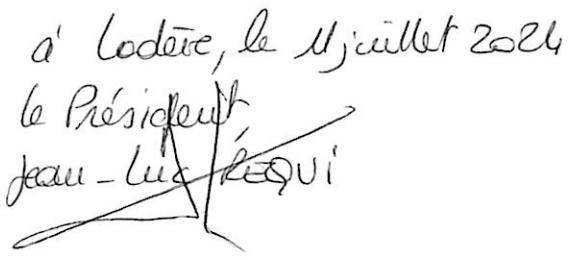 à Lodève, le 11 juillet 2024
le Président
Jean-Luc REQUI